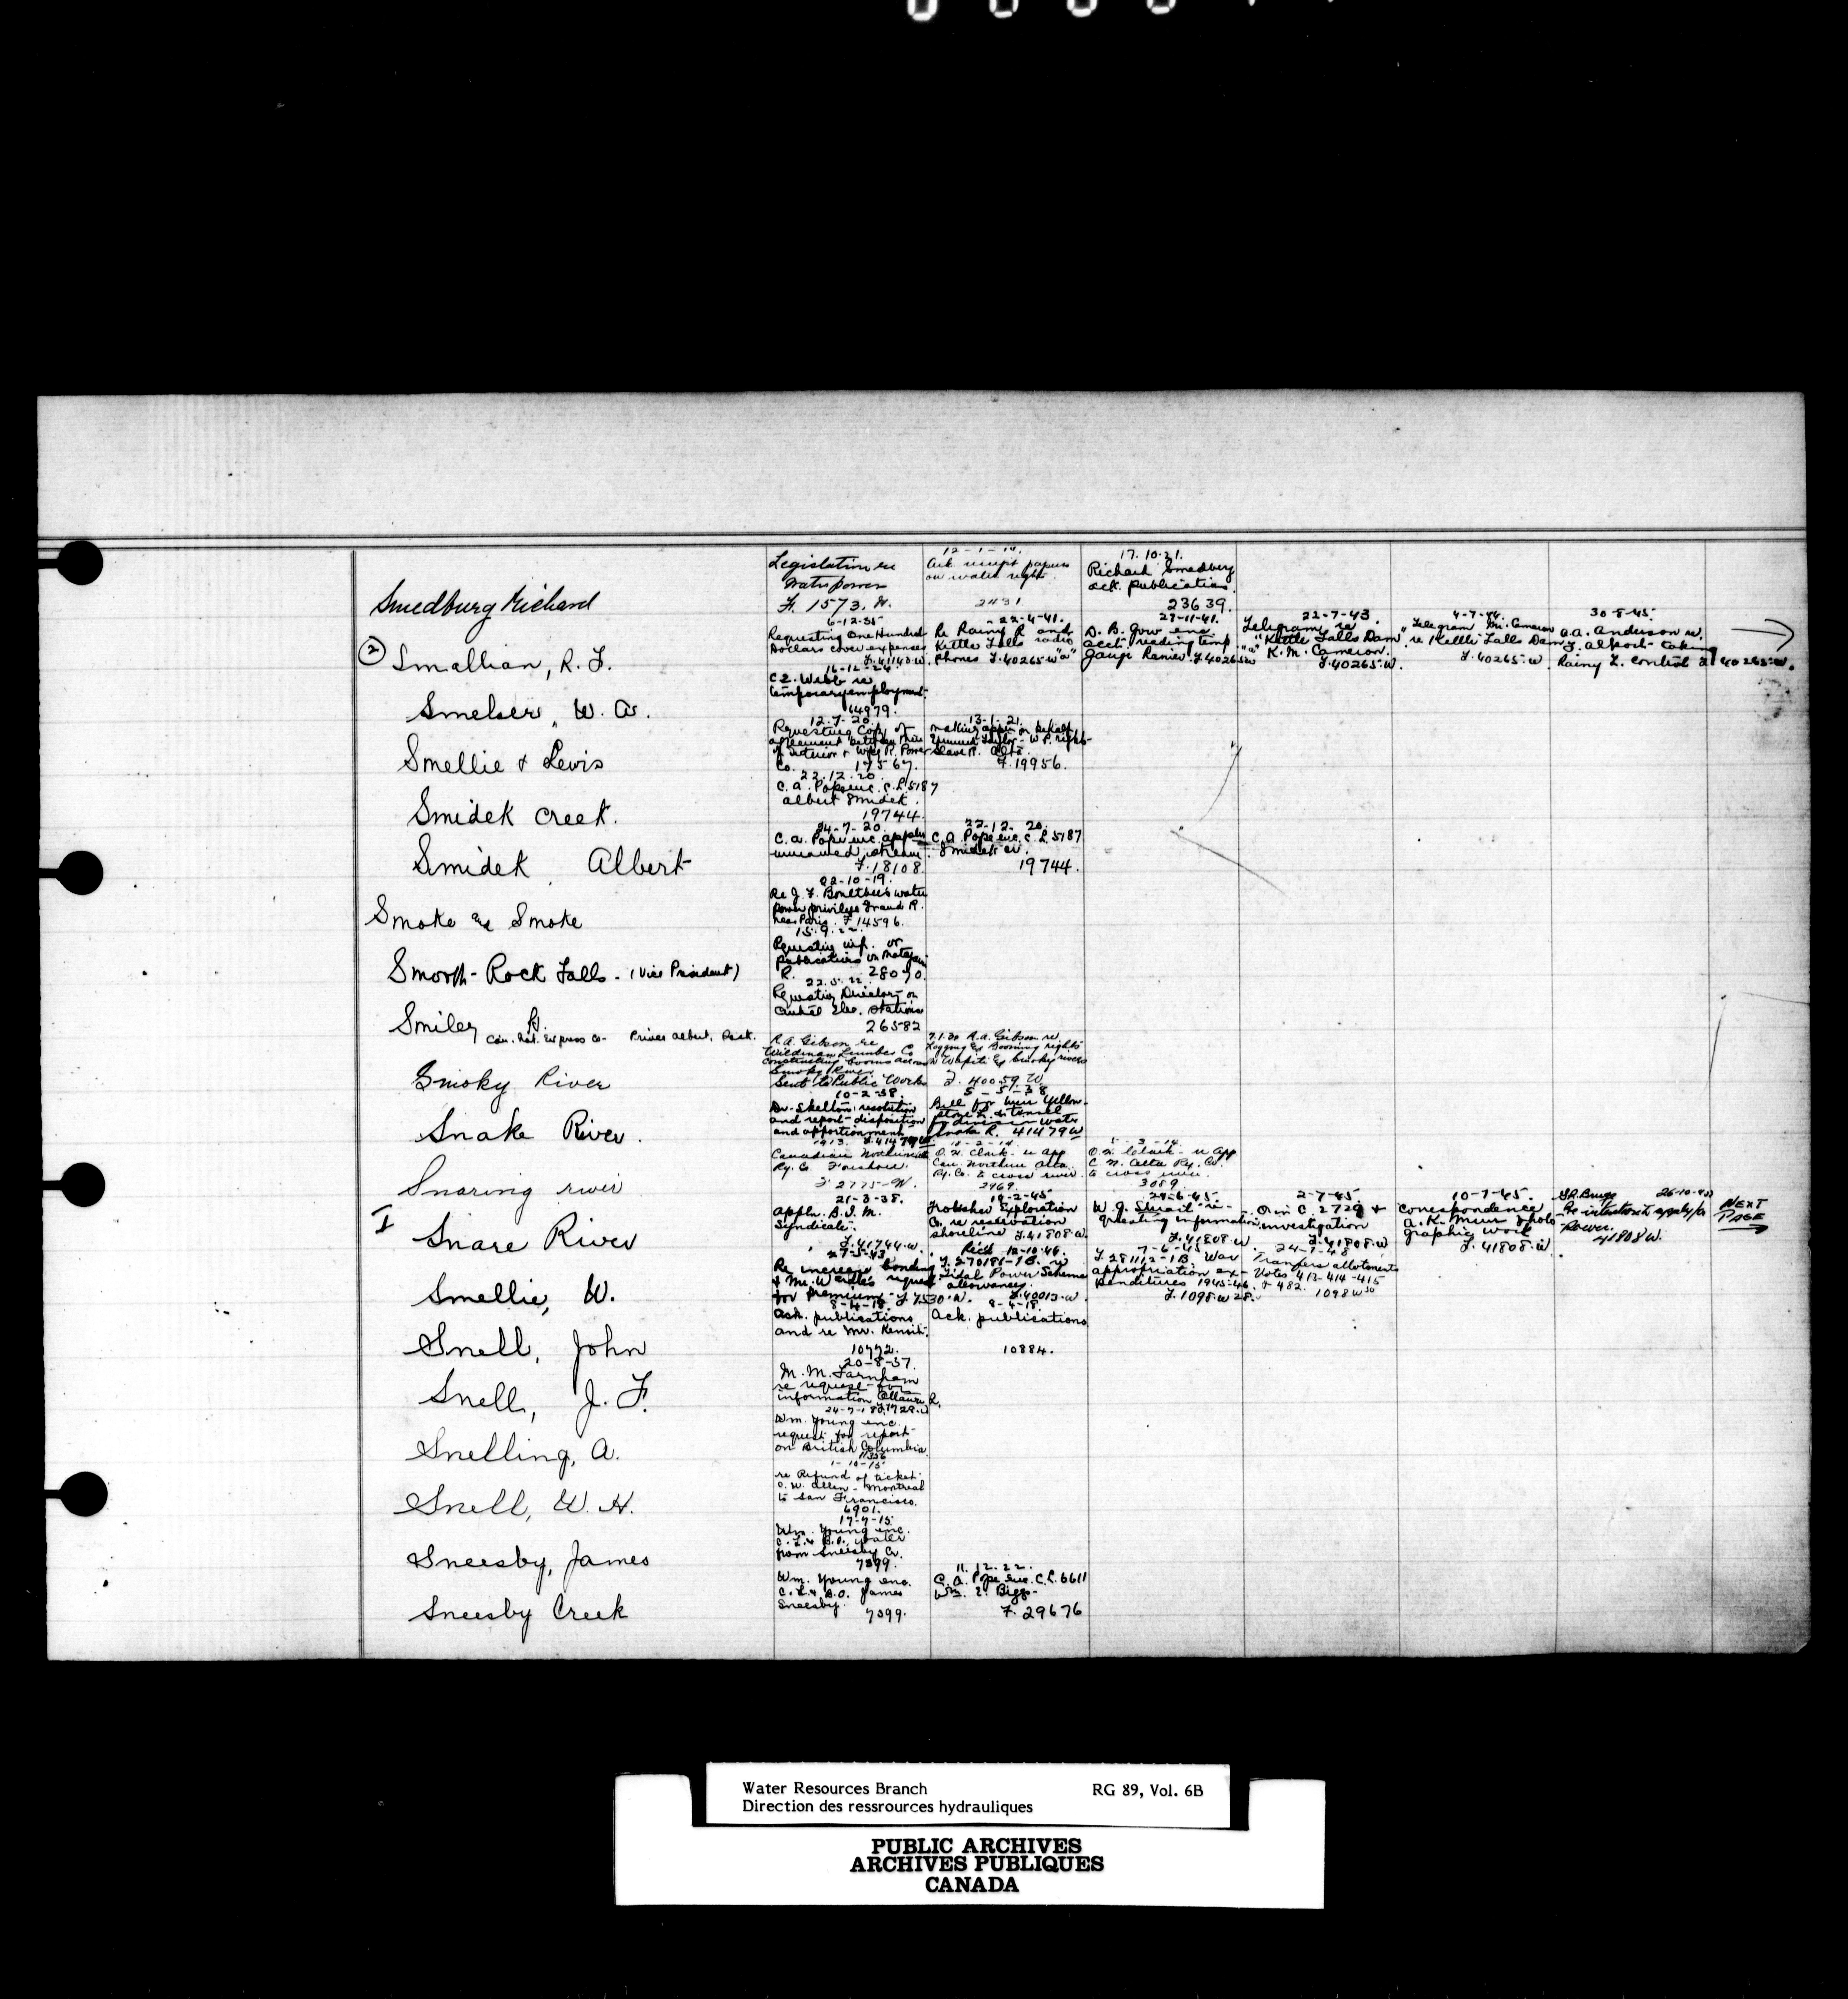 Smedburg Richard
Legislation re
Water power
F. 1573. W.
12-1-14.
Ack receipt papers
on water right.
2431
17.10.21.
Richard Smedburg
ack. publication.
23639.
② Smallian, R. F.
6-12-35
Requesting One Hundred
Dollars cover expenses
F. 41140-W.
22-4-41.
Re Rainy R and
Kettle Falls radio
phones F. 40265-W "a"
29-11-41.
D. B. Gow enc.
acct. reading temp
gauge Ranier. F. 40265-W
22-7-43.
Telegram re
"Kettle Falls Dam"
K. M. Cameron.
F. 40265-W.
4-7-44
Telegram Mr. Cameron
re Kettle Falls Dam
F. 40265-W
30-8-45
A. A. Anderson re.
Rainy L. control F. 40265-W.
Smelser, W. A.
16-12-24
C. E. Webb re
temporary employment.
44979.
Smellie & Lewis
12.7.20.
Requesting Copy of
agreement between Min
of Interior & Wpg R. Power
Co. 17567.
13-1-21.
making appn on behalf
Taylor - W. P. rights
Slave R. Alta.
F. 19956.
Smidek Creek.
22.12.20.
C. A. Pope enc. C. L 5187
Albert Smidek.
19744
Smidek Albert
24-7-20.
C. A. Pope enc. appln
unnamed stream.
F. 18108.
22-12-20.
C. A. Pope enc. C. L 5187
Smidek Cr.
19744.
Smoke and Smoke
22-10-19.
Re J. F. Boultbee's water
power privileges Grand R.
near Paris. F. 14596.
Smooth-Rock Falls - (Vice President)
15.9.22.
Requesting inf. or
publications on Mattagami
R. 28070.
Smiley R.
Can. Nat. Express Co- Prince Albert, Sask.
22.5.22.
Requesting Directory on
Central Elec. Stations
26582
Smoky River
R. A. Gibson re
Wildman Lumber Co
constructing booms across
Smoky River
Sent to Public Works
7.1.30 R. A. Gibson re.
Logging & Booming rights
on Wapiti & Smoky rivers
F. 40059 W
Snake River.
10-2-38.
Dr. Skelton: resolution
and report-disposition
and apportionment
F. 41479 W
5-5-38
Bill for weir Yellow-
stone L. & tunnel
for diversion water
Snake R. 41479 W
Snaring river
1913.
Canadian Northern
Ry. Co. Foreshore.
F 2775-W.
O. H. Clark - re app
Can. Northern Alta.
Ry. Co. to cross river
2969.
O. H. Clark - re app
C. N. Alta Ry. Co.
to cross river.
3089.
I Snare River
21-3-38.
Appln. B. I. M.
Syndicate.
F. 41744-W.
19-2-45
Frobisher Exploration
Co. re reservation
shoreline F. 41808-W.
29-6-45.
W. J. Strait re-
questing information
F. 41808-W
2-7-45.
O. in C. 2729 &
investigation
F. 41808-W
10-7-45.
Correspondence
A. K. Muir photo-
graphic work
F. 41808-W
26-10-45
Re intention to apply for
Power.
41808 W.
NEXT
PAGE
Smellie, W.
27-5-43
Re increase bonding
& Mr. Wardle's request
for premium - F 7530-W.
Recd 12-10-44.
F. 270181-1B. re
Tidal Power Scheme
allowances.
F. 40013-W
7-6-45
F. 281112-1B. War
appropriation ex-
penditures 1945-46.
F. 1098-W 28.
24-7-48
Transfers allotments
Votes 413-414-415
& 482. 1098 W 30
Snell, John
8-4-18.
Ack. publications
and re Mr. Kensit.
10772.
8-4-18.
Ack. publications
10884.
Snell, J. F.
20-8-37.
M. M. Farnham
re request for
information Ottawa R.
Snelling, A.
Wm. Young enc.
request for report
on British Columbia
Snell, W. H.
1-10-15
re Refund of ticket
O. W. Allen - Montreal
to San Francisco.
6901.
Sneesby, James
17-9-15
Wm. Young enc.
C. L. & B. O. water
from Sneesby Cr.
7399.
Sneesby Creek
Wm. Young enc.
C. L. & B. O. James
Sneesby.
7399.
11.12.22.
C. A. Pope enc. C. L. 6611
Wm. E. Biggs-
F. 29676
Water Resources Branch RG 89, Vol. 6B
Direction des ressrources hydrauliques
PUBLIC ARCHIVES
ARCHIVES PUBLIQUES
CANADA